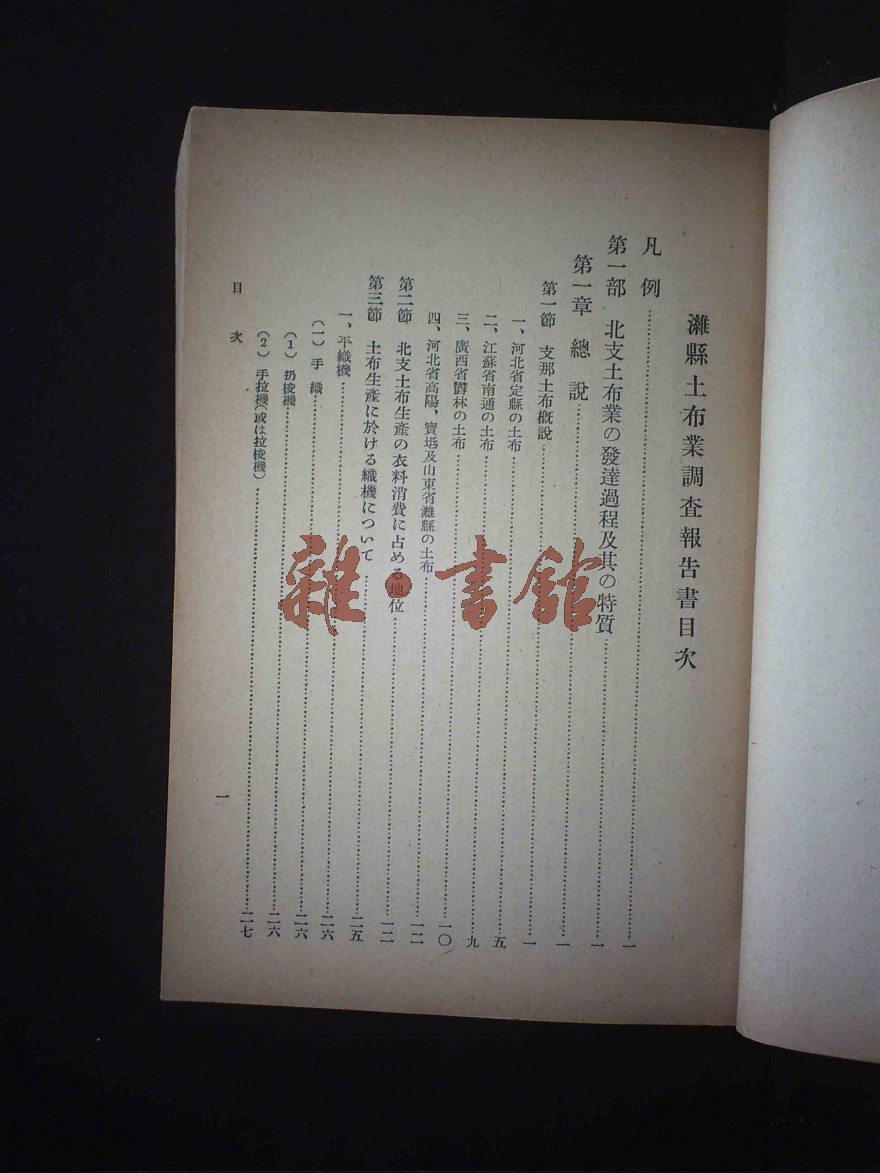 濰縣土布業調査報告書目次
凡例……一
第一部 北支土布業の發達過程及其の特質……一
第一章 總說……一
第一節 支那土布概說……一
一、河北省定縣の土布……五
二、江蘇省南通の土布……九
三、廣西省欝林の土布……一〇
四、河北省高陽、寶坻及山東省濰縣の土布……一二
第二節 北支土布生產の衣料消費に占める地位……一二
第三節 土布生產に於ける織機について……二五
一、平織機……二六
（一）手織……二六
（1）扔梭機……二六
（2）手拉機（或は拉梭機）……二七
目次
一
雜·書館